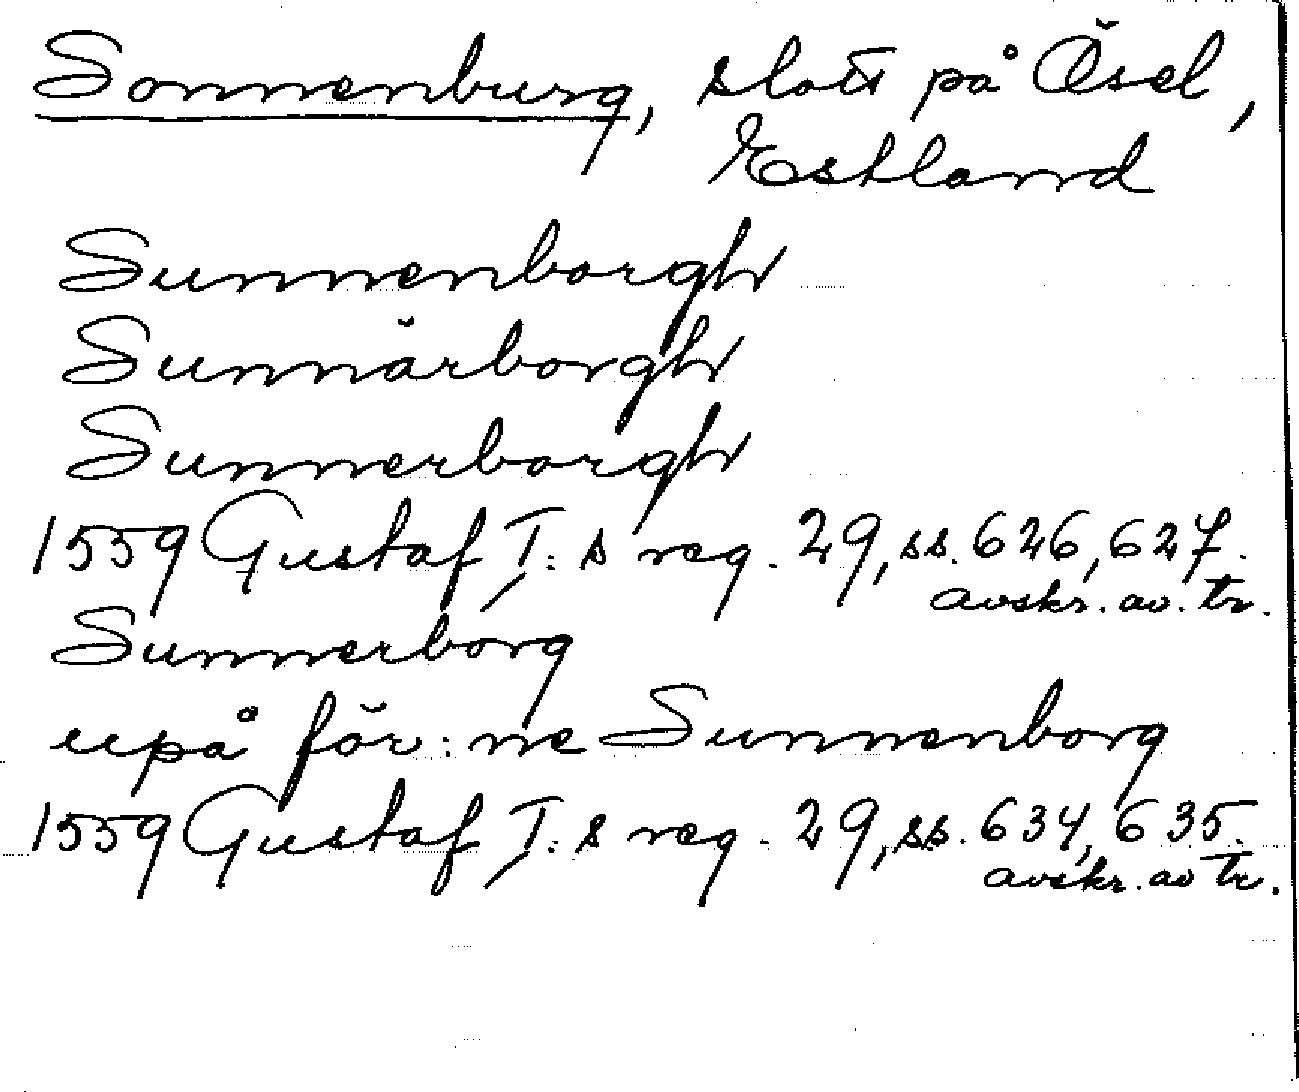 Sonnenburg, slott på Ösel,
Estland
Sunnenborgh
Sunnärborgh
Sunnerborgh
1559 Gustaf I:s reg. 29, ss. 626, 627.
avskr. av. tr.
Sunnerborg
upå för:ne Sunnenborg
1559 Gustaf I:s reg. 29, ss. 634, 635.
avskr. av tr.